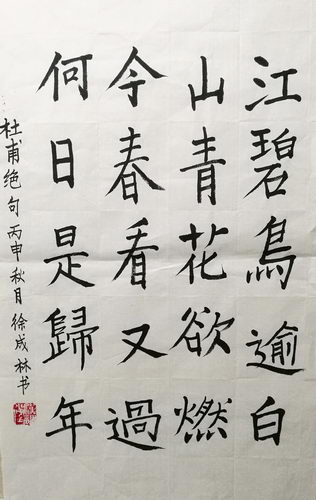 江碧鳥逾白
山青花欲燃
今春看又過
何日是歸年
杜甫绝句丙申秋月徐成林书